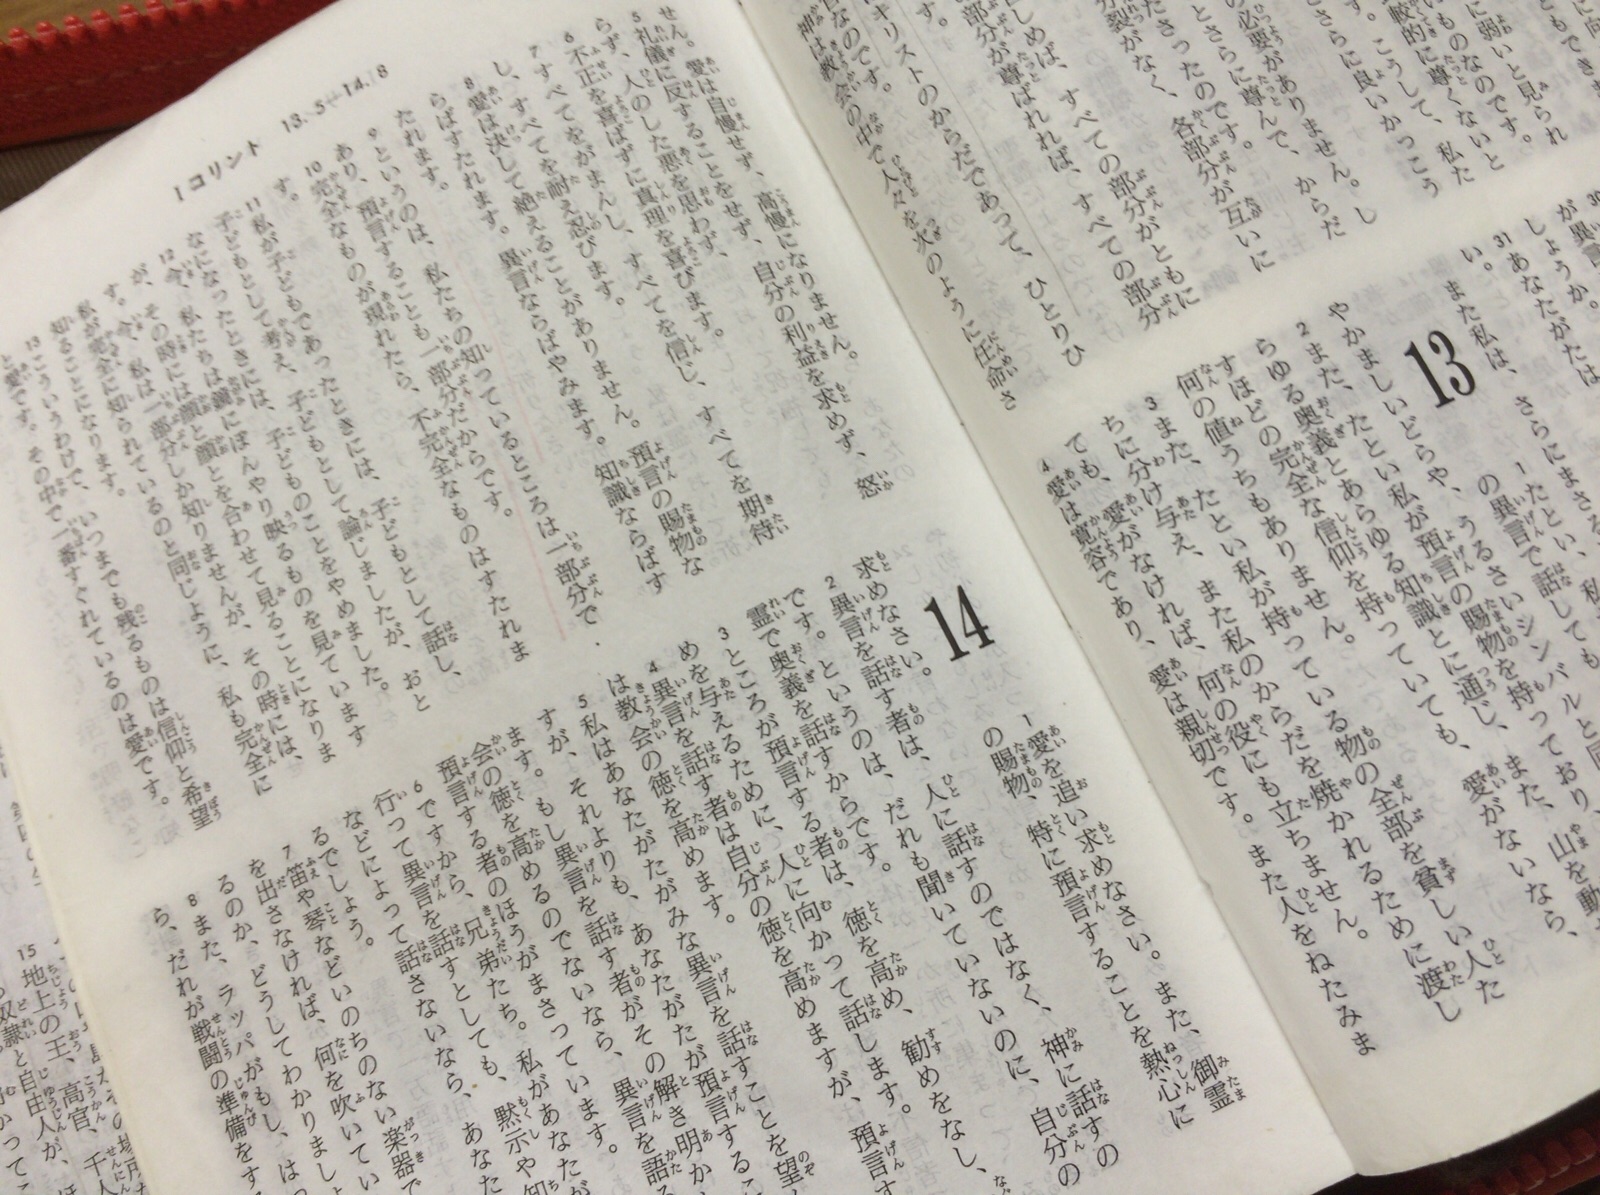 に弱いと見られ
ものなのです。
較的に尊くないと
こうして、私た
さらに良いかっこう
ともできま
必要がありません。し
とさらに尊んで、からだ
ださったのです。
分裂がなく、各部分が互いに
しめば、すべての部分がともに
部分が尊ばれれば、すべての部分
す。
キリストのからだであって、ひとりひ
なのです。
神は教会の中で人々を次のように任命さ
が異言
しょうか。
31あなたがたは
い。
また私は、さらにまさる
13
1たとい、私
の異言で話しても
やかましいどらや、うるさいシンバルと同
2また、たとい私が預言の賜物を持っており、また、あ
らゆる奥義とあらゆる知識とに通じ、また、山を動か
すほどの完全な信仰を持っていても、愛がないなら、
何の値うちもありません。
3また、たとい私が持っている物の全部を貧しい人た
ちに分け与え、また私のからだを焼かれるために渡し
ても、愛がなければ、何の役にも立ちません。
4愛は寛容であり、愛は親切です。また人をねたみま
Ⅰコリント 13.5―14.8
せん。愛は自慢せず、高慢になりません。
5礼儀に反することをせず、自分の利益を求めず、怒
らず、人のした悪を思わず、
6不正を喜ばずに真理を喜びます。
7すべてをがまんし、すべてを信じ、すべてを期待
し、すべてを耐え忍びます。
8愛は決して絶えることがありません。預言の賜物な
らばすたれます。異言ならばやみます。知識ならばす
たれます。
9というのは、私たちの知っているところは一部分で
あり、預言することも一部分だからです。
10完全なものが現れたら、不完全なものはすたれま
す。
11私が子どもであったときには、子どもとして話し、
子どもとして考え、子どもとして論じましたが、おと
なになったときには、子どものことをやめました。
12今、私たちは鏡にぼんやり映るものを見ています
が、その時には顔と顔とを合わせて見ることになりま
す。今、私は一部分しか知りませんが、その時には、
私が完全に知られているのと同じように、私も完全に
知ることになります。
13こういうわけで、いつまでも残るものは信仰と希望
と愛です。その中で一番すぐれているのは愛です。
14
1愛を追い求めなさい。また、御霊
の賜物、特に預言することを熱心に
求めなさい。
2異言を話す者は、人に話すのではなく、神に話すの
です。というのは、だれも聞いていないのに、自分の
霊で奥義を話すからです。
3ところが預言する者は、徳を高め、勧めをなし、
めを与えるために、人に向かって話します。
4異言を話す者は自分の徳を高めますが、預言す
は教会の徳を高めます。
5私はあなたがたがみな異言を話すことを望
すが、それよりも、あなたがたが預言するこ
ます。もし異言を話す者がその解き明か
会の徳を高めるのでないなら、異言を語
預言する者のほうがまさっています。
6ですから、兄弟たち。私があなた
行って異言を話すとしても、黙示や知
などによって話さないなら、あなた
るでしょう。
7笛や琴などいのちのない楽器で
を出さなければ、何を吹いてい
るのか、どうしてわかりましょ
8また、ラッパがもし、は
ら、だれが戦闘の準備をする
15地上の王、高官、千人
奴隷と自由人が、ほ